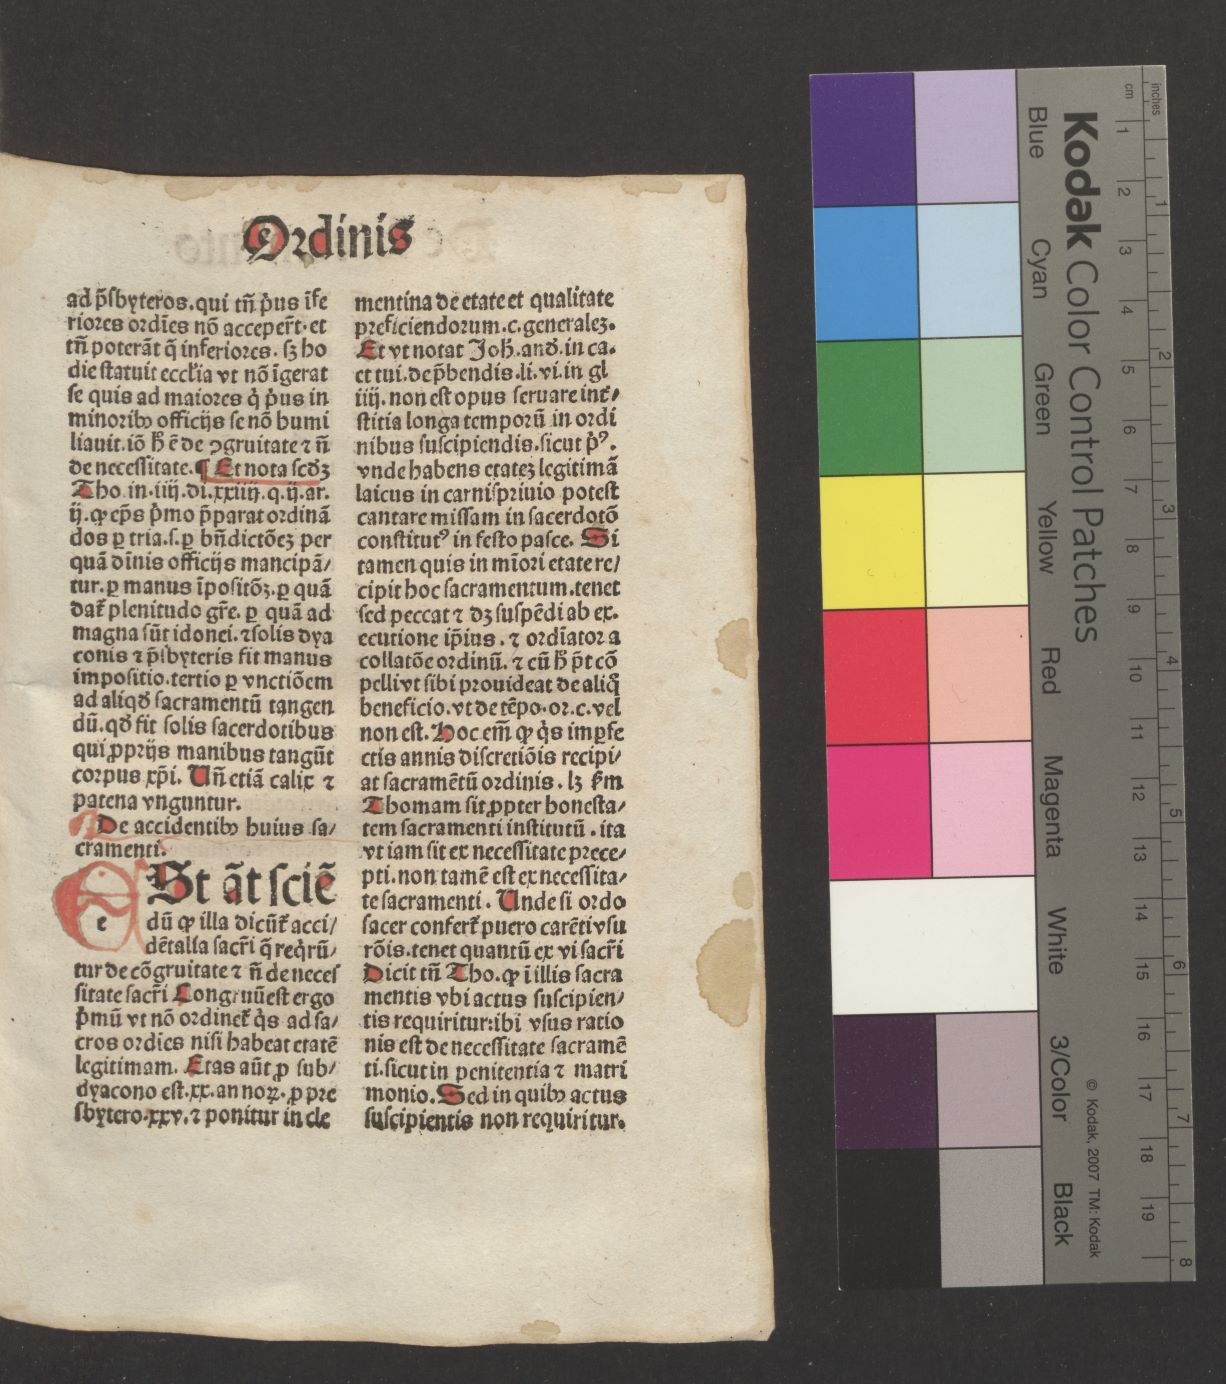 Ordinis
ad p̄sbyteros. qui tn̄ pꝰus īfe
riores ordīes nō acceper̄t. et
tn̄ poterāt q̄ inferiores. sꝫ ho
die statuit eccl̄ia vt nō īgerat
se quis ad maiores q̇ pꝰus in
minoribꝰ officijs se nō humi
liauit. iō h̄ ē de ꝯgruitate ⁊ n̄
de necessitate. ¶ Et nota scd̄ꝫ
Tho. in .iiij. di. xxiiij. q. ij. ar.
ij. ꝙ ep̄s p̄mo p̄parat ordinā
dos ꝑ tria. s. ꝑ bn̄dictōeꝫ per
quā dīnis officijs mancipā/
tur. ꝑ manus īpositōꝫ. ꝑ quā
dat̄ plenitudo gr̄e. ꝑ quā ad
magna sūt idonei. ⁊ solis dya
conis ⁊ p̄sbyteris fit manus
impositio. tertio ꝑ vnctiōem
ad aliqd̄ sacramentū tangen
dū. qd̄ fit solis sacerdotibus
qui ꝓprijs manibus tangūt
corpus xp̄i. Un̄ etiā calix ⁊
patena vnguntur.
De accidentibꝰ huius sa/
cramenti.
e
St āt sciē
dū ꝙ illa dicūt̄ acci/
dētalia sacr̄i q̄ reqͥrū/
tur de cōgruitate ⁊ n̄ de neces
sitate sacr̄i Congruū est ergo
p̄mū vt nō ordinet̄ qͥs ad sa/
cros ordīes nisi habeat etatē
legitimam. Etas aūt ꝓ sub/
dyacono est .xx. annoꝝ. ꝓ pre
sbytero .xxv. ⁊ ponitur in cle
mentina de etate et qualitate
preficiendorum. c. generaleꝫ.
Et vt notat Joh̄. and̄. in ca.
et tui. de p̄bendis. li. vi. in gl
iiij. non est opus seruare int̄/
stitia longa temporū in ordi
nibus suscipiendis. sicut pͥꝰ.
vnde habens etateꝫ legitimā
laicus in carnispriuio potest
cantare missam in sacerdotō
constitutꝰ in festo pasce. Si
tamen quis in mīori etate re/
cipit hoc sacramentum. tenet
sed peccat ⁊ dꝫ suspēdi ab ex.
ecutione ip̄ius. ⁊ ordīator a
collatōe ordinū. ⁊ cū h̄ p̄t cō
pelli vt sibi prouideat de aliq̄
beneficio. vt de tēpo. or. c. vel
non est. Hoc em̄ ꝙ qͥs imꝑfe
ctis annis discretiōis recipi/
at sacramētū ordinis. lꝫ s̄m
Thomam sit ꝓpter honesta/
tem sacramenti institutū. ita
vt iam sit ex necessitate prece/
pti. non tamē est ex necessita/
te sacramenti. Unde si ordo
sacer confert̄ puero carēti vsu
rōis. tenet quantū ex vi sacr̄i
Dicit tn̄ Tho. ꝙ ī illis sacra
mentis vbi actus suscipien/
tis requiritur: ibi vsus ratio
nis est de necessitate sacramē
ti. sicut in penitentia ⁊ matri
monio. Sed in quibꝰ actus
suscipientis non requiritur.
Kodak Color Control Patches
© Kodak, 2007 TM: Kodak
Blue
Cyan
Green
Yellow
Red
Magenta
White
3/Color
Black
cm 1 2 3 4 5 6 7 8 9 10 11 12 13 14 15 16 17 18 19
inches 1 2 3 4 5 6 7 8